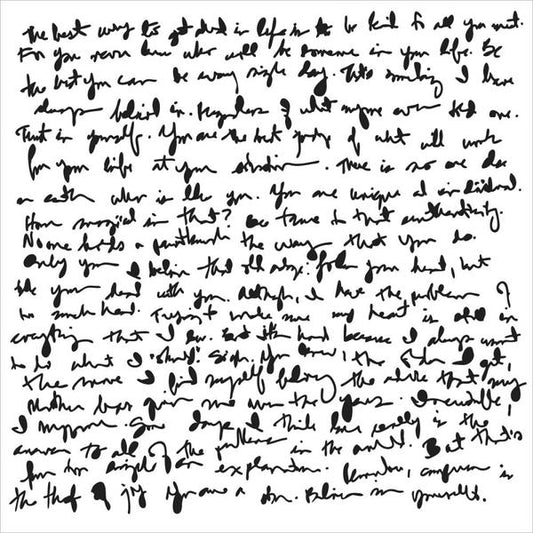 The best way to get ahead in life is to be kind to all you meet.
For you never know who will be someone in your life. Be
the best you can be every single day. That's something I have
always believed in. Regardless of what anyone ever told me.
Trust in yourself. You are the best judge of what will work
for your life at your situation. There is no one else
on earth who is like you. You are unique and individual.
How magical is that? Be true to that authenticity.
No one holds a paintbrush the way that you do.
Only you I believe that old adage: follow your heart, but
take your head with you. Although, I have the problem of
too much heart. Trying to make sure my heart is still in
everything that I do. But it's hard because I always want
to do what I "should". Sigh. You know, the older I get,
the more I find myself believing the advice that my
Mother has given me over the years. Incredible,
I suppose. Some days, I think love really is the
answer to all of the problems in the world. But that's
far too simple an explanation. Remember, comparison is
the thief of joy. You are a star. Believe in yourself.